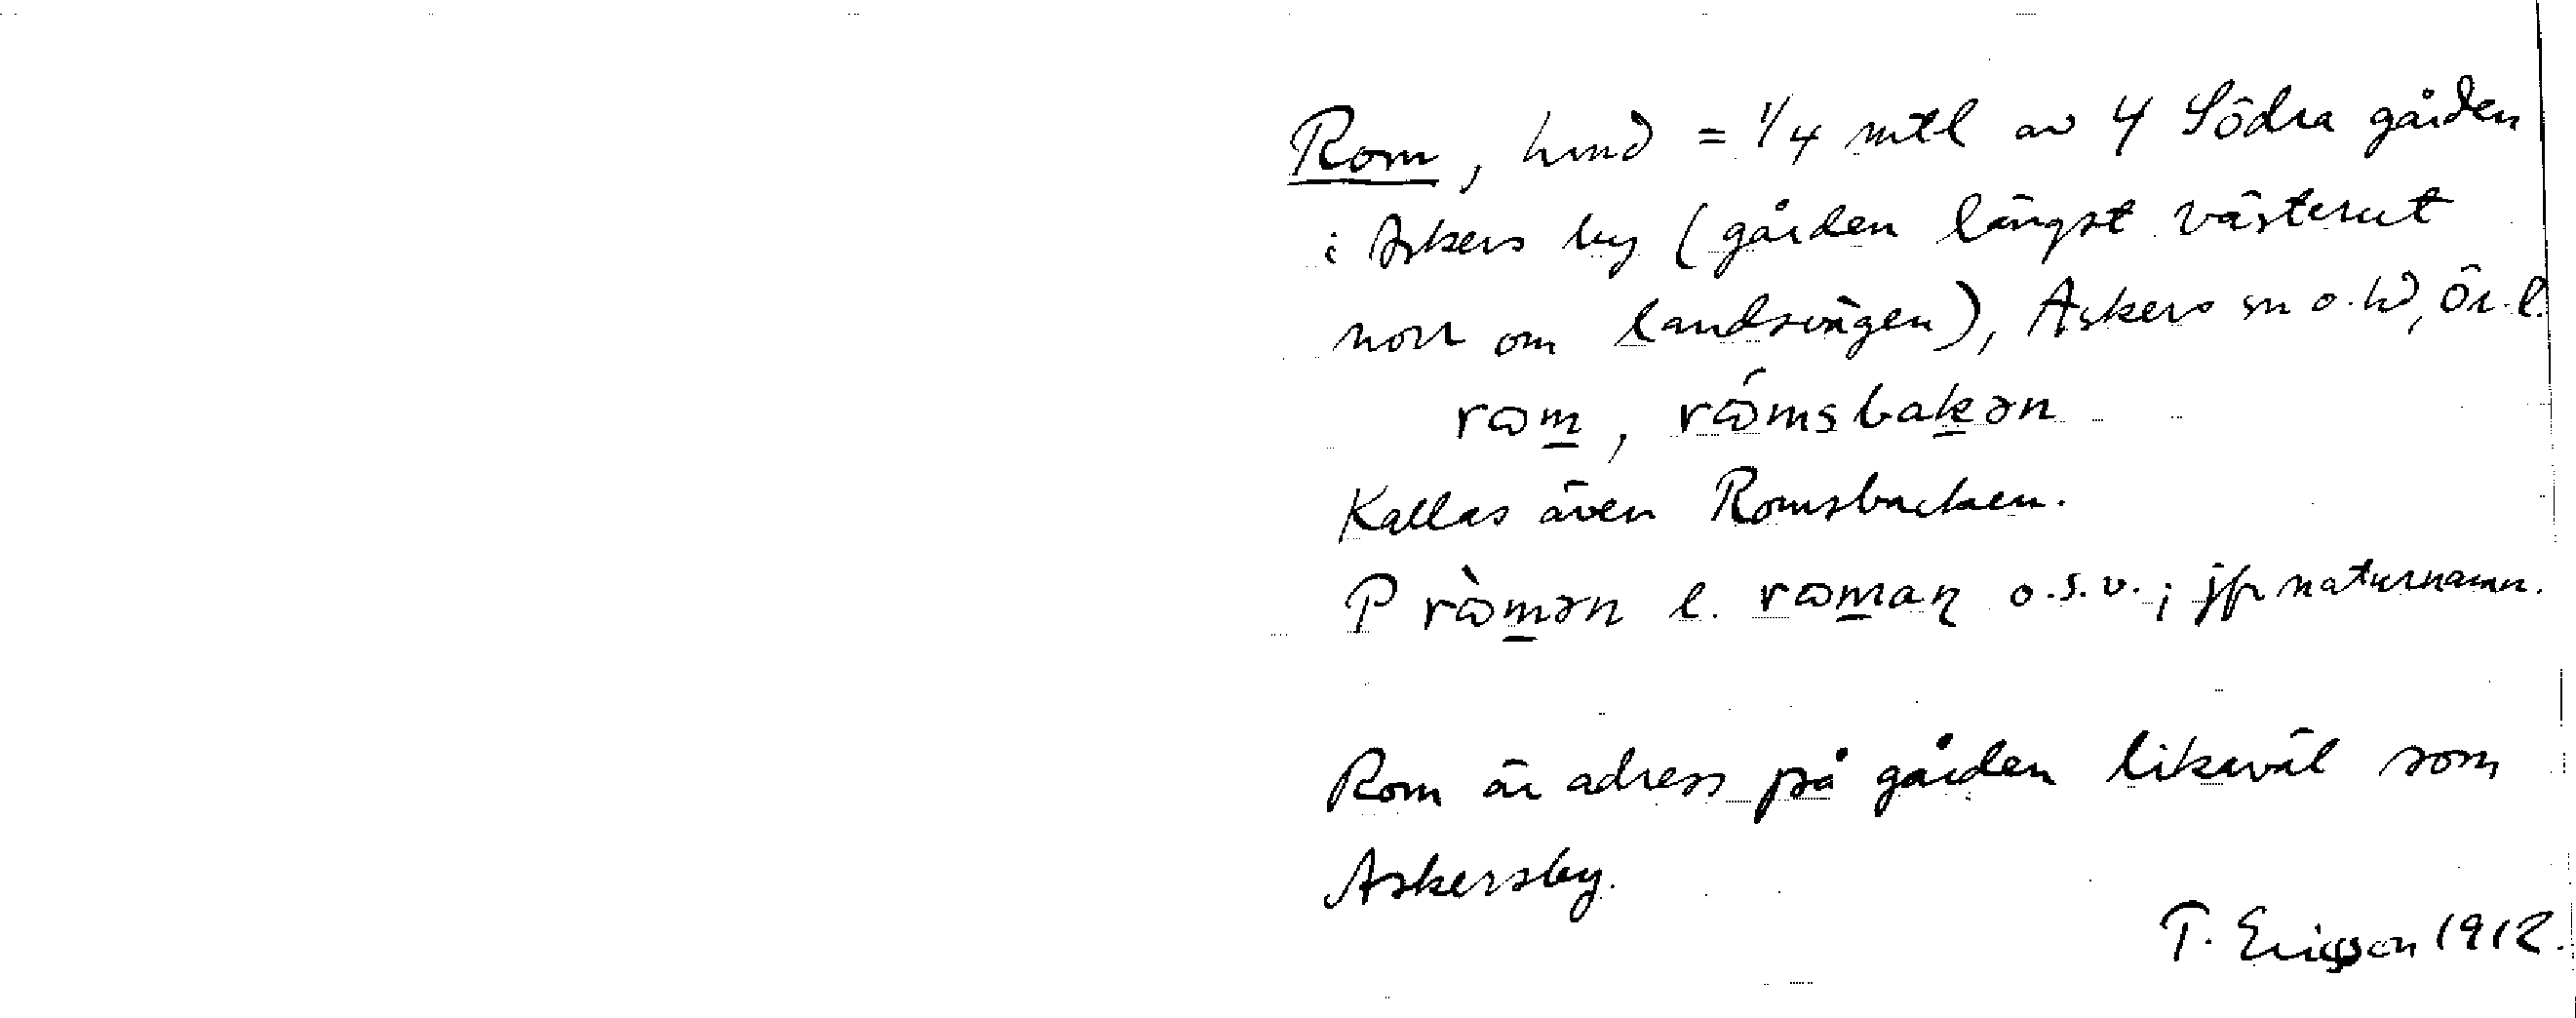 Rom, hmd = 1/4 mtl av 4 Södra gården
i Askers by (gården längst västerut
norr om landsvägen), Askers sn o. hd, Ör. l.
rωm, rώmsbakən
Kallas även Romsbacken.
P rὼmən l. rωmaɳ o.s.v.; jfr naturnamn.
Rom är adress på gården likaväl som
Askersby.
T. Ericsson 1912.